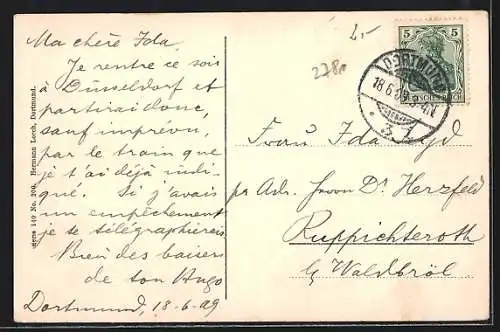 Ma chère Ida.
Je rentre ce soir
à Düsseldorf et
partirai donc,
sauf imprévu,
par le train que
je t'ai déjà indi-
qué. Si j'avais
un empêchement
je te télégraphierais
Bien des baisers
de ton Hugo
Dortmund, 18-6-09
Hermann Lorch, Dortmund.
No. 200.
2,-
5 5
DORTMUND
18.6.09
3 1
Frau Ida
pr Adr. Herrn Dr. Herzfeld
Ruppichteroth
b/ Waldbröl